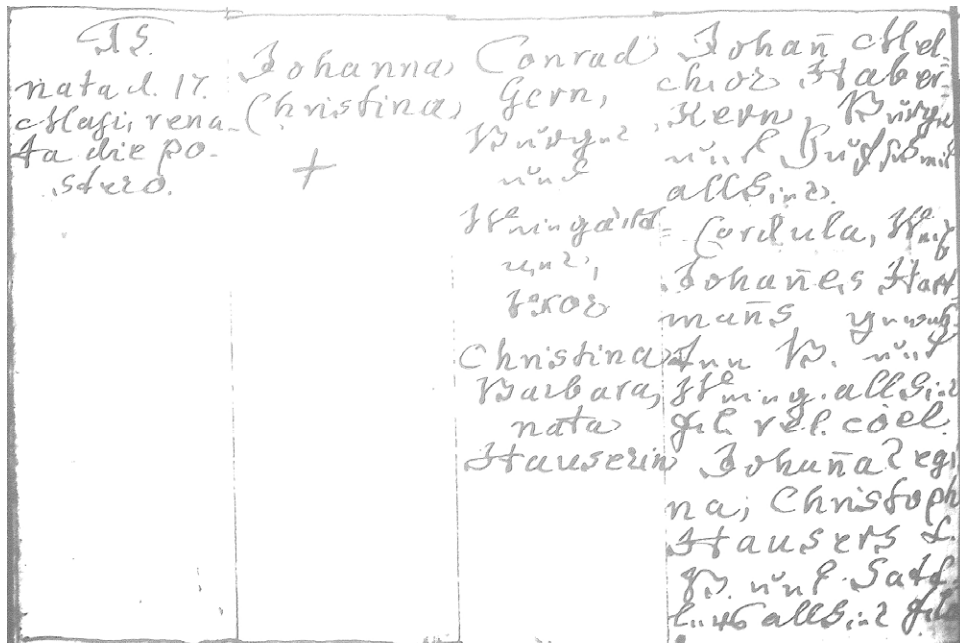 15.
nata d. 17.
Maji, rena-
ta die po-
stero.
Johanna
Christina
+
Conrad
Gern,
Burger
und
Weingärt-
ner,
uxor
Christina
Barbara,
nata
Hauserin
Johan̄ Mel-
chior Haber-
Kern, Burger
und
allhier.
Cordula,
Johan̄es Hart-
man̄s
B. und
Weing. allhier
rel. coel.
Johan̄a Regi
na, Christoph
Hausers
B. und
allhier